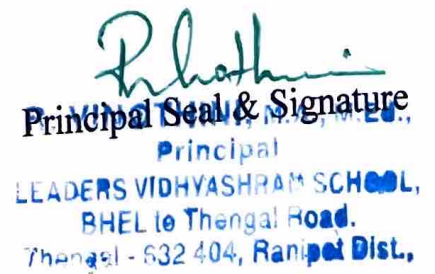 Principal Seal & Signature
Principal
LEADERS VIDHYASHRAM SCHOOL,
BHEL to Thengal Road.
Thengal - 632 404, Ranipet Dist.,